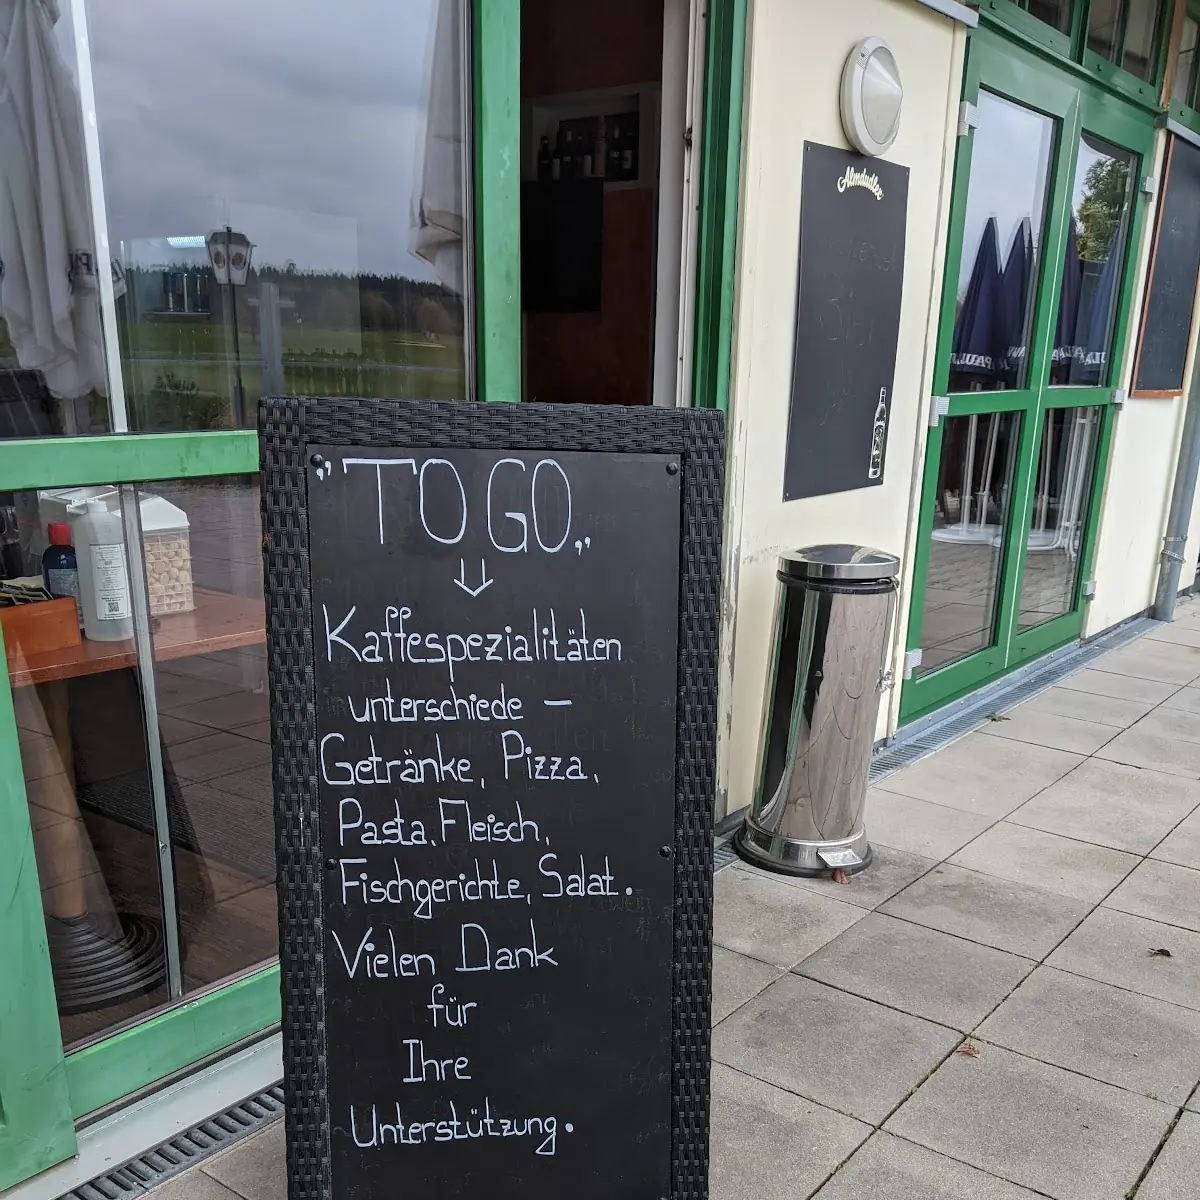 "TO GO"
Kaffespezialitäten
unterschiede -
Getränke, Pizza,
Pasta, Fleisch,
Fischgerichte, Salat.
Vielen Dank
für
Ihre
Unterstützung.
Almdudler